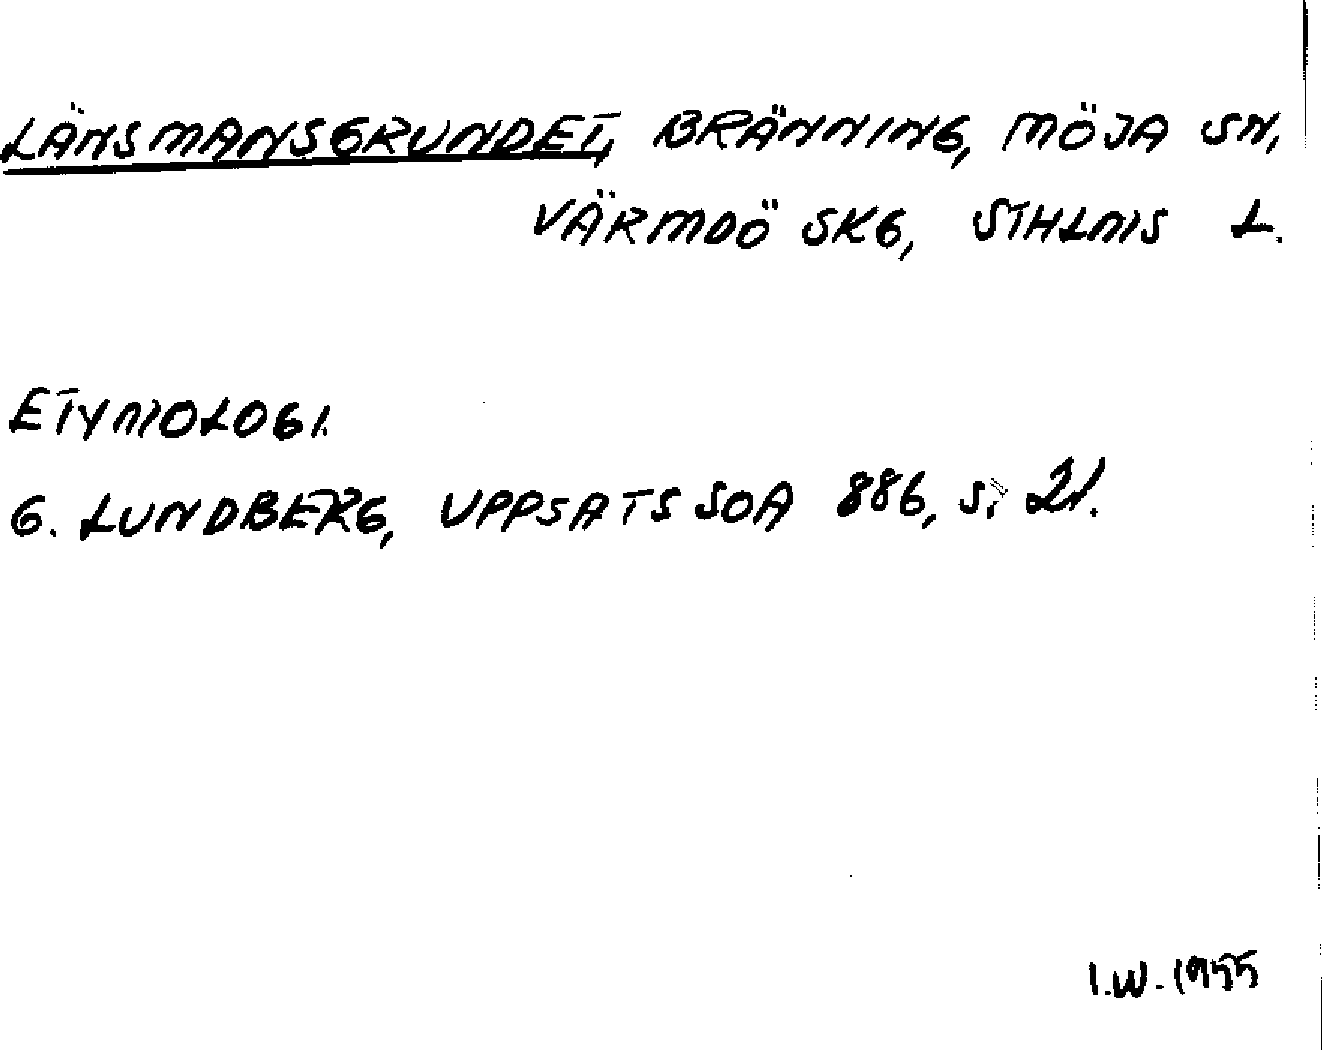 LÄNSMANSGRUNDET, BRÄNNING, MÖJA SN,
VÄRMDÖ SKG, STHLMS L.
ETYMOLOGI.
G. LUNDBERG, UPPSATS SOA 886, S. 21.
I.W. 1955